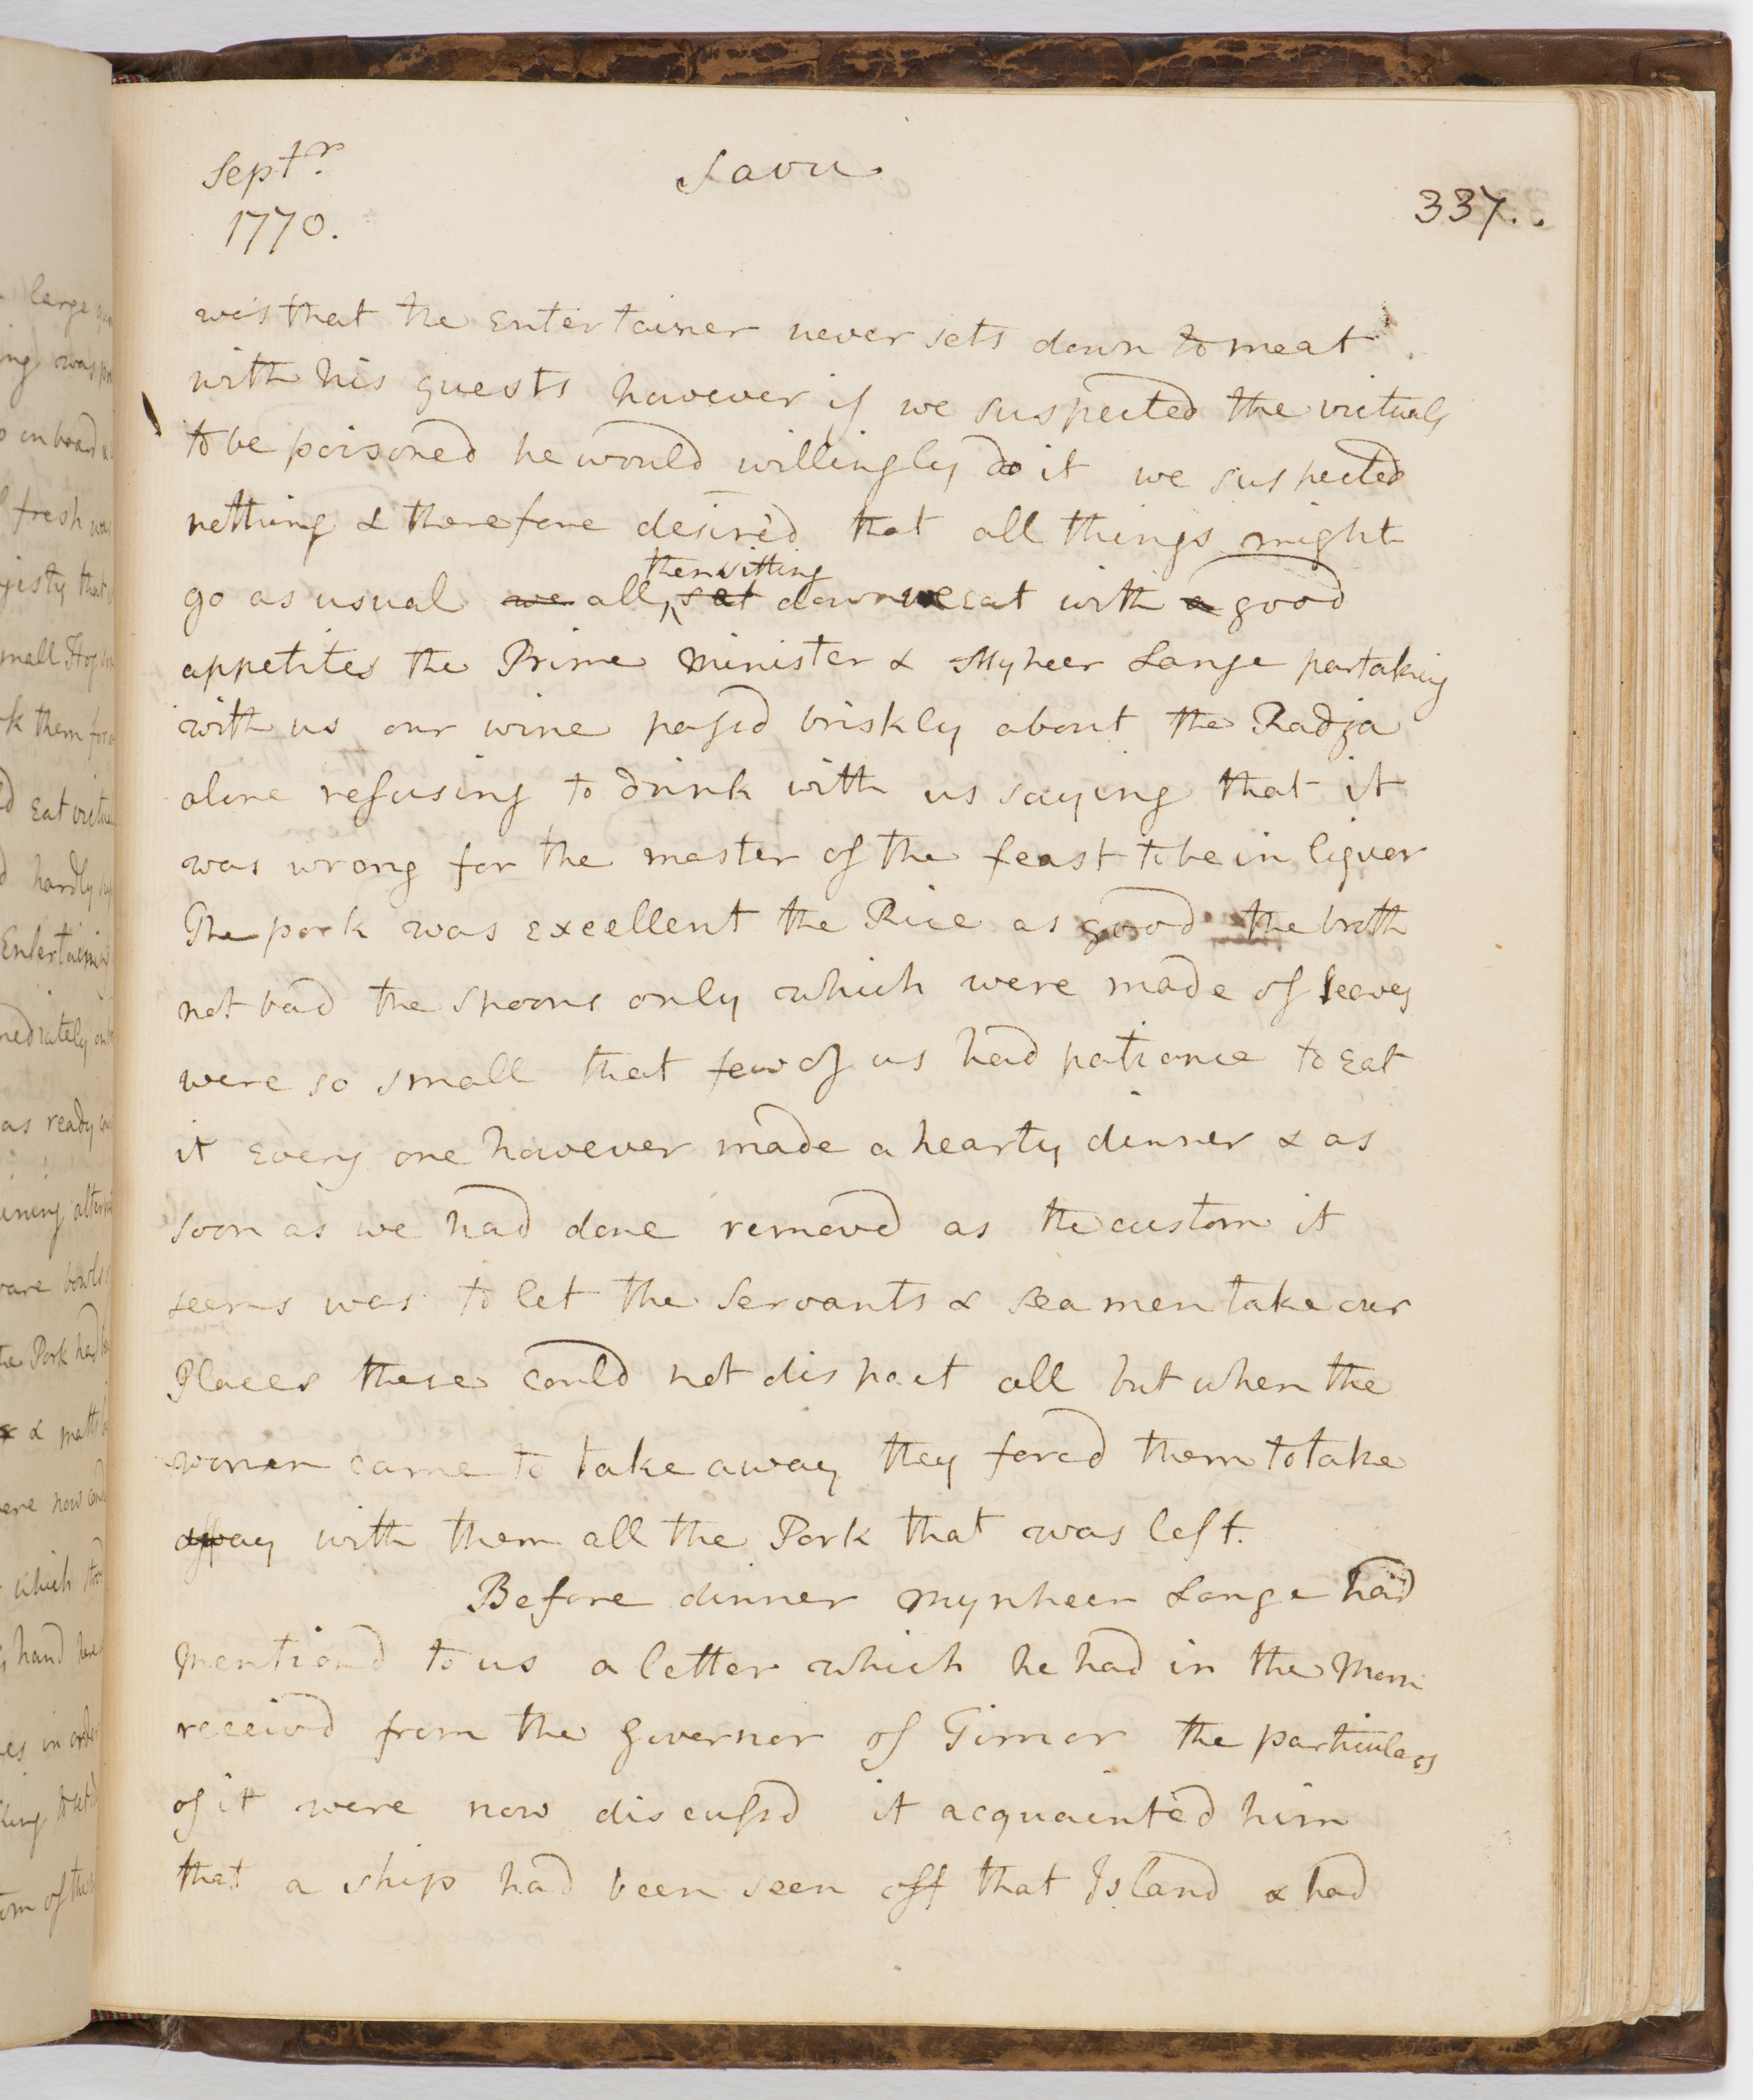 Septr.
1770.
Savu
337.
was that the Entertainer never sets down to meat
with his guests however if we suspected the victuals
to be poisoned he would willingly do it we suspected
nothing & therefore desired that all things might
then sitting
go as usual we all set down we eat with a good
appetites the Prime Minister & Myheer Lange partaking
with us our wine passd briskly about the Radja
alone refusing to drink with us saying that it
was wrong for the master of the feast to be in liquer
The pork was excellent the Rice as good the broth
not bad the spoons only which were made of leaves
were so small that few of us had patience to Eat
it Every one however made a hearty dinner & as
soon as we had done removd as the custom it
seems was to let the Servants & seamen take our
Places these could not dispact all but when the
women came to take away they forcd them to take
away with them all the Pork that was left.
Before dinner Mynheer Lange had
mentiond to us a letter which he had in the Morn
receivd from the Governor of Timor the particulars
of it were now discussd it acquainted him
that a ship had been seen off that Island & had
large
ng was
on board
fresh
jesty that
mall Hog
k them for
d Eat
d hardly
Entertaining
mediately
as ready
ining
ware bowls
the Pork had
& matts
ere now
which
hand
es in order
king
om of